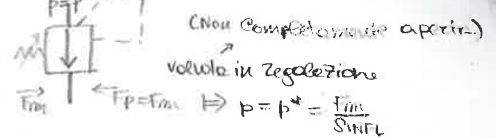 p=p*
(Non completamente aperta)
valvola in regolazione
Fm
Fp=Fm ⇒ p = p* = Fm
SINFL